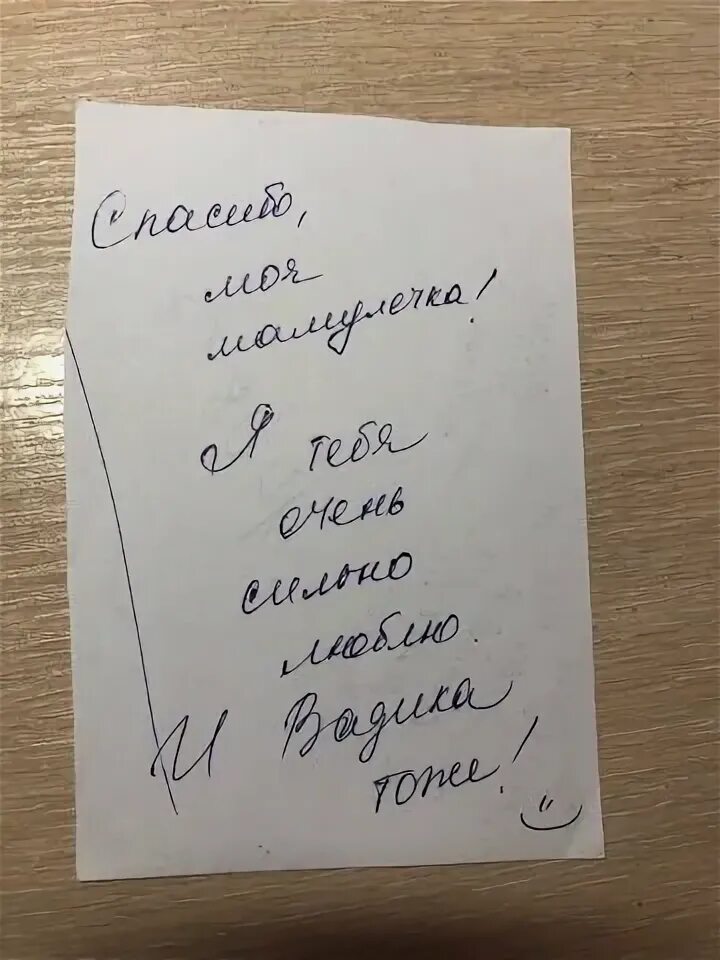 Спасибо,
моя
мамулечка!
Я тебя
очень
сильно
люблю.
И Вадика
тоже!